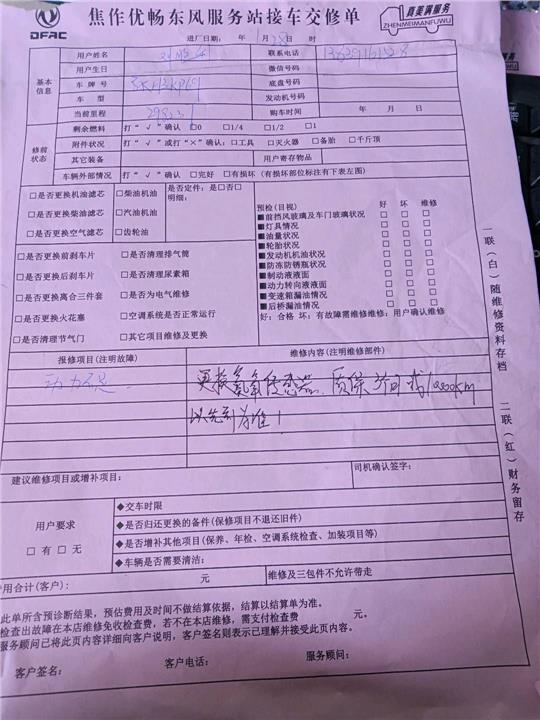 DFAC
焦作优畅东风服务站接车交修单
真美满服务
ZHENMEIMANFUWU
进厂日期： 年 月 28日 时
基本信息
用户姓名 联系电话
用户生日 微信号码
车牌号 底盘号码
车 型 发动机号码
当前里程 购车时间 年 月 日
修前状态
剩余燃料 打“√”确认 □0 □1/4 □1/2 □1
附件状况 打“√”或打“×”确认：□工具 □灭火器 □备胎 □千斤顶
其它装备 用户寄存物品
车辆外部情况 打“√”确认 □完好 □有损坏（有损坏部位标注有下表左图）
□是否更换机油滤芯 □柴油机油 是否定件：是□否□
□是否更换柴油滤芯 □汽油机油 明细：
□是否更换空气滤芯 □齿轮油
□是否更换前刹车片 □是否清理排气筒
□是否更换后刹车片 □是否清理尿素箱
□是否更换离合三件套 □是否为电气维修
□是否更换火花塞 □空调系统是否正常运行
□是否清理节气门 □其它项目维修及更换
预检(目视) 好 坏 维修
■前挡风玻璃及车门玻璃状况 □ □ □
■灯具情况 □ □ □
■油量状况 □ □ □
■轮胎状况 □ □ □
■发动机机油状况 □ □ □
■防冻防锈瓶状况 □ □ □
■制动液液面 □ □ □
■动力转向液液面 □ □ □
■变速箱漏油情况 □ □ □
■后桥漏油情况 □ □ □
好：合格 坏：有故障需维修维修：用户确认维修
报修项目(注明故障) 维修内容(注明维修部件)
动力不足 更换氮氧传感器，质保
以先到为准！
建议维修项目或增补项目： 司机确认签字：
用户要求
□有 □无
◆交车时限
◆是否归还更换的备件(保修项目不退还旧件)
◆是否增补其他项目(保养、年检、空调系统检查、加装项目等)
◆车辆是否需要清洁：
用合计(客户)： 元 维修及三包件不允许带走
此单所含预诊断结果，预估费用及时间不做结算依据，结算以结算单为准。
检查出故障在本店维修免收检查费，若不在本店维修，需支付检查费 元。
服务顾问已将此页内容详细向客户说明，客户签名则表示已理解并接受此页内容。
客户签名： 客户电话： 服务顾问：
一联（白）随维修资料存档
二联（红）财务留存